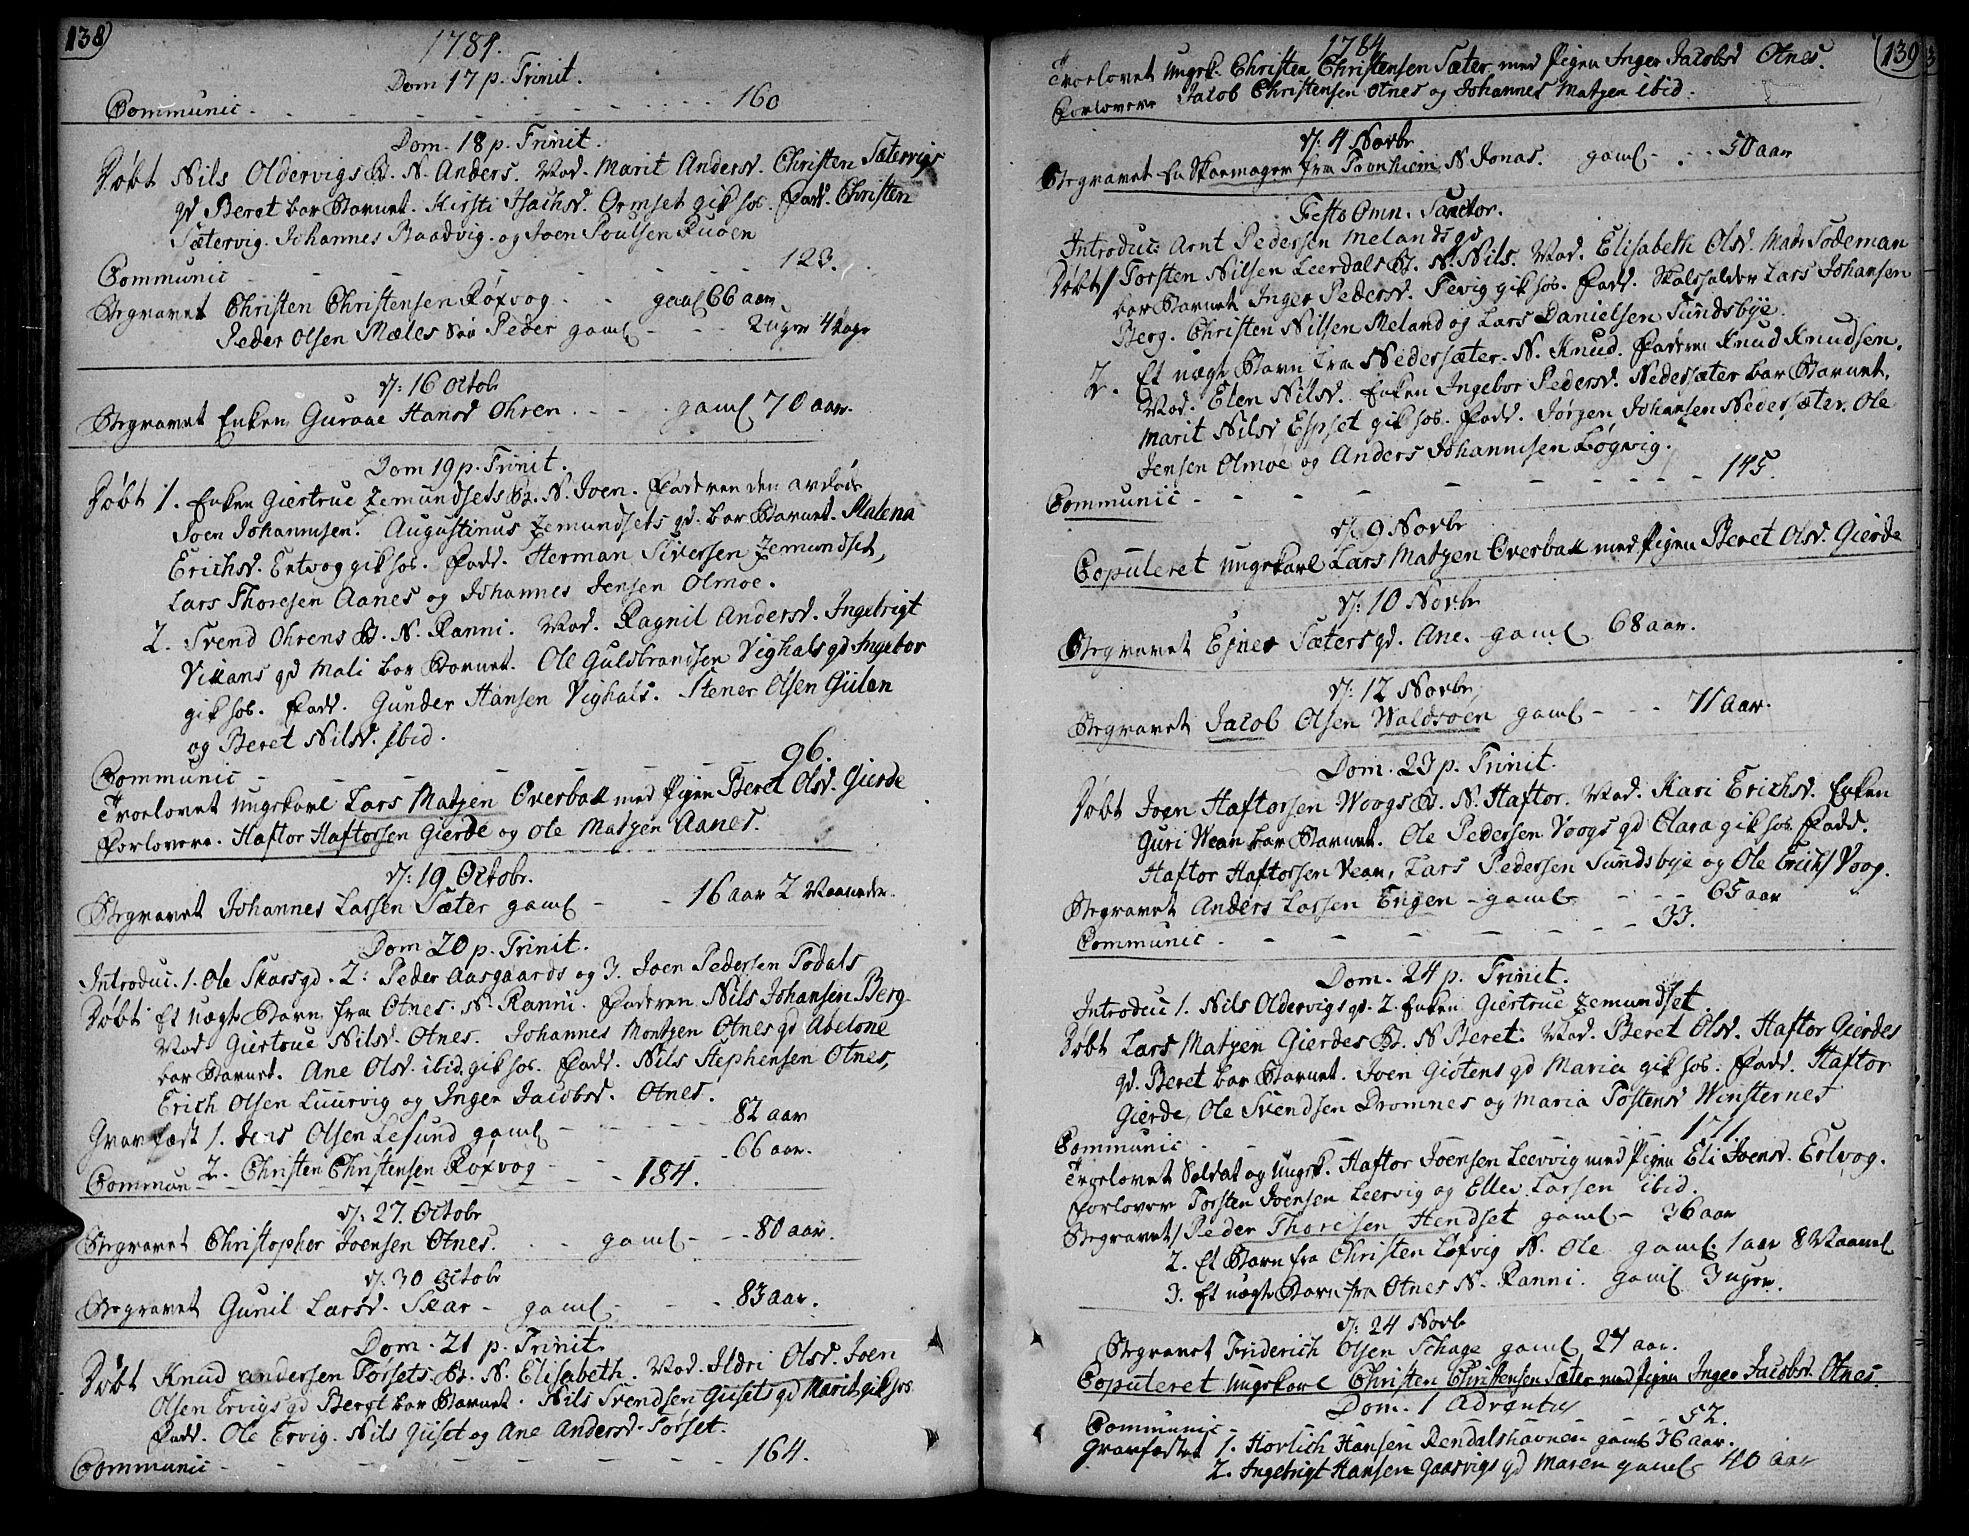 138)
1784.
Dom 17 p. Trinit.
Communic - - - - - - 160
Dom. 18 p. Trinit.
Døbt Nils Oldervigs B. N. Anders. Mod. Marit Andersd. Christen Sætervigs
qd Beret bar Barnet. Kirsti Isachsd. Ormset gik hos. Fadd. Christen
Sætervig. Johannes Baadvig. og Joen Poulsen Ruøen
Communic - - - - - - 123.
Begravet Christen Christensen Røxvog - - gaml 66 aar
Peder Olsen Mæles Søn Peder gaml - - - 2 uger 4 dage
d: 16 Octobr
Begravet Enken Guroae Hansd Ohren - - - gaml 70 aar.
Dom 19 p. Trinit.
Døbt 1. Enken Giertrue Zemundsets B. N. Joen. Faderen den avdøde
Joen Johannesen. Augustinus Zemundsets qd. bar Barnet. Malena
Erichsd. Ertvog gik hos. Fadd. Herman Siversen Zemundset,
Lars Thoresen Aanes og Johannes Jensen Olmoe.
2. Svend Ohrens B. N. Ranni. Mod. Ragnil Andersd. Ingebrigt
Vikans qd Mali bar Barnet. Ole Guldbrandsen Vighals qd Ingebor
gik hos. Fadd. Gunder Hansen Vighals. Stener Olsen Giilen
og Beret Nilsd. ibid.
Communic - - - - - - 96.
Trolovet Ungekarl Lars Matzen Overball med Pigen Beret Olsd. Gierde
Forlovere. Haftor Haftorsen Gierde og Ole Matzen Aanes.
d: 19 Octobr.
Begravet Johannes Larsen Sæter gaml - - 16 aar 2 Maaneder.
Dom 20 p. Trinit.
Introduc. 1. Ole Skarsqd. 2: Peder Aasgaards og 3. Joen Pedersen Todals
Døbt Et uægte Barn fra Otnes. N. Ranni. Faderen Nils Johansen Berg
Mod. Giertrue Nilsd. Otnes. Johannes Montzen Otnes qd Abelone
bar Barnet. Ane Olsd. ibid. gik hos. Fadd. Nils Stephensen Otnes,
Erich Olsen Luurvig og Inger Jacobsd. Otnes.
Gravfæst 1. Jens Olsen Lesund gaml - - - - - 82 aar
2. Christen Christensen Røxvog - - - - 66 aar.
Commun - - - - - - 184.
d: 27. Octobr
Begravet Christopher Joensen Otnes. - - gaml - - 80 aar.
d. 30 Octobr
Begravet Gunil Larsd. Skar - gaml - - - 83 aar.
Dom. 21 p. Trinit.
Døbt Knud Andersen Torsets B. N. Elisabeth. Mod. Ildri Olsd. Joen
Olsen Ervigs qd Beret bar Barnet. Nils Svendsen Giisets qd Marit gik hos
Fadd. Ole Ervig. Nils Giiset og Ane Andersd. Torset.
Communic - - - - - - 164.
1784
(139
Trolovet Ungk. Christen Christensen Sæter med Pigen Inger Jacobsd Otnes.
Forlovere Jacob Christensen Otnes og Johannes Matzen ibid.
d: 4 Novbr
Begravet En Skoemager fra Tronhiem N. Jonas. gaml - - - 50 aar
Festo Omn. Sanctor.
Introduc: Arnt Pedersen Melands qd
Døbt 1 Torsten Nilsen Leerdals B. N. Nils. Mod. Elisabeth Olsd. Mads Sødeman
bar Barnet Inger Pedersd. Tevig gik hos. Fadd. Skolholder Lars Johansen
Berg. Christen Nilsen Meland og Lars Danielsen Sundsbye.
2. Et uægte Barn fra Nedersæter. N. Knud. Faderen Knud Knudsen.
Mod. Elen Nilsd. Enken Ingebor Pedersd. Nedersæter bar Barnet.
Marit Nilsd Espset gik hos. Fadd. Jørgen Johansen Nedersæter. Ole
Jensen Olmoe og Anders Johannesen Bøgvig.
Communic - - - - - - 145.
d: 9 Novbr
Copuleret Ungekarl Lars Matzen Overball med Pigen Beret Olsd. Gierde
d: 10 Novbr
Begravet Ejner Sæters qd. Ane. gaml 68 aar.
d: 12 Novbr
Begravet Jacob Olsen Waldsøen gaml - - - 71 Aar.
Dom. 23 p. Trinit.
Døbt Joen Haftorsen Woogs B. N. Haftor. Mod. Kari Erichsd. Enken
Guri Wean bar Barnet. Ole Pedersen Voogs qd Clara gik hos. Fadd.
Haftor Haftorsen Vean, Lars Pedersen Sundsbye og Ole Erichs Voog.
Begravet Anders Larsen Engen - gaml - - - 65 aar
Communic - - - - - - 33.
Dom. 24 p. Trinit.
Introduc 1. Nils Oldervigs qd. 2. Enken Giertrue Zemundset.
Døbt Lars Matzen Gierdes B. N Beret. Mod. Beret Olsd. Haftor Gierdes
qd. Beret bar Barnet. Joen Giøtens qd Maria gik hos. Fadd. Haftor
Gierde, Ole Svendsen Dromnes og Maria Tostensd Winsternes
Communic - - - - - - 171.
Trolovet Soldat og Ungk. Haftor Joensen Leervig med Pigen Eli Joensd. Ertvog.
Forlovere Torsten Joensen Leervig og Ellev Larsen ibid.
Begravet 1 Peder Thoresen Hendset gaml - 36 aar
2. Et Barn fra Christen Løfvig N. Ole gaml. 1 aar 8 Maaned
3. Et uægte Barn fra Otnes N. Ranni. gaml 3 uger.
d: 24 Novb
Begravet Friderich Olsen Schage gaml 27 aar.
Copuleret Ungekarl Christen Christensen Sæter med Pigen Inger Jacobsd. Otnes.
Dom. 1 Adventus
Communic - - - - - - 52.
Gravfæstet 1. Horlich Hansen Rendalshavnen gaml 36 aar.
2. Ingebrigt Hansen Gaasvigs qd Maren gaml 40 aar